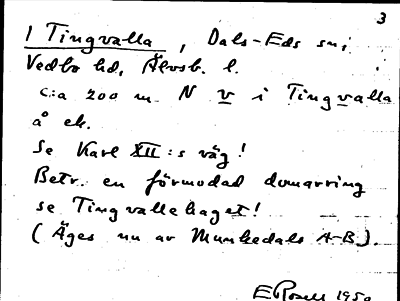 3
1 Tingvalla, Dals-Eds sn,
Vedbo hd, Älvsb. l.
c:a 200 m. N v i Tingvalla
å ek.
Se Karl XII:s väg!
Betr. en förmodad domarring
se Tingvallehaget!
(Äges nu av Munkedals A-B.).
1950